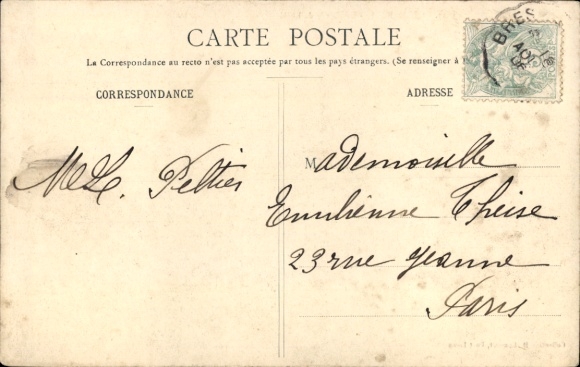 CARTE POSTALE
La Correspondance au recto n'est pas acceptée par tous les pays étrangers. (Se renseigner à
CORRESPONDANCE
ADRESSE
BRES
AOU
M. L. Peltier
Mademoiselle
Emilienne Theise
23 rue Jeanne
Paris